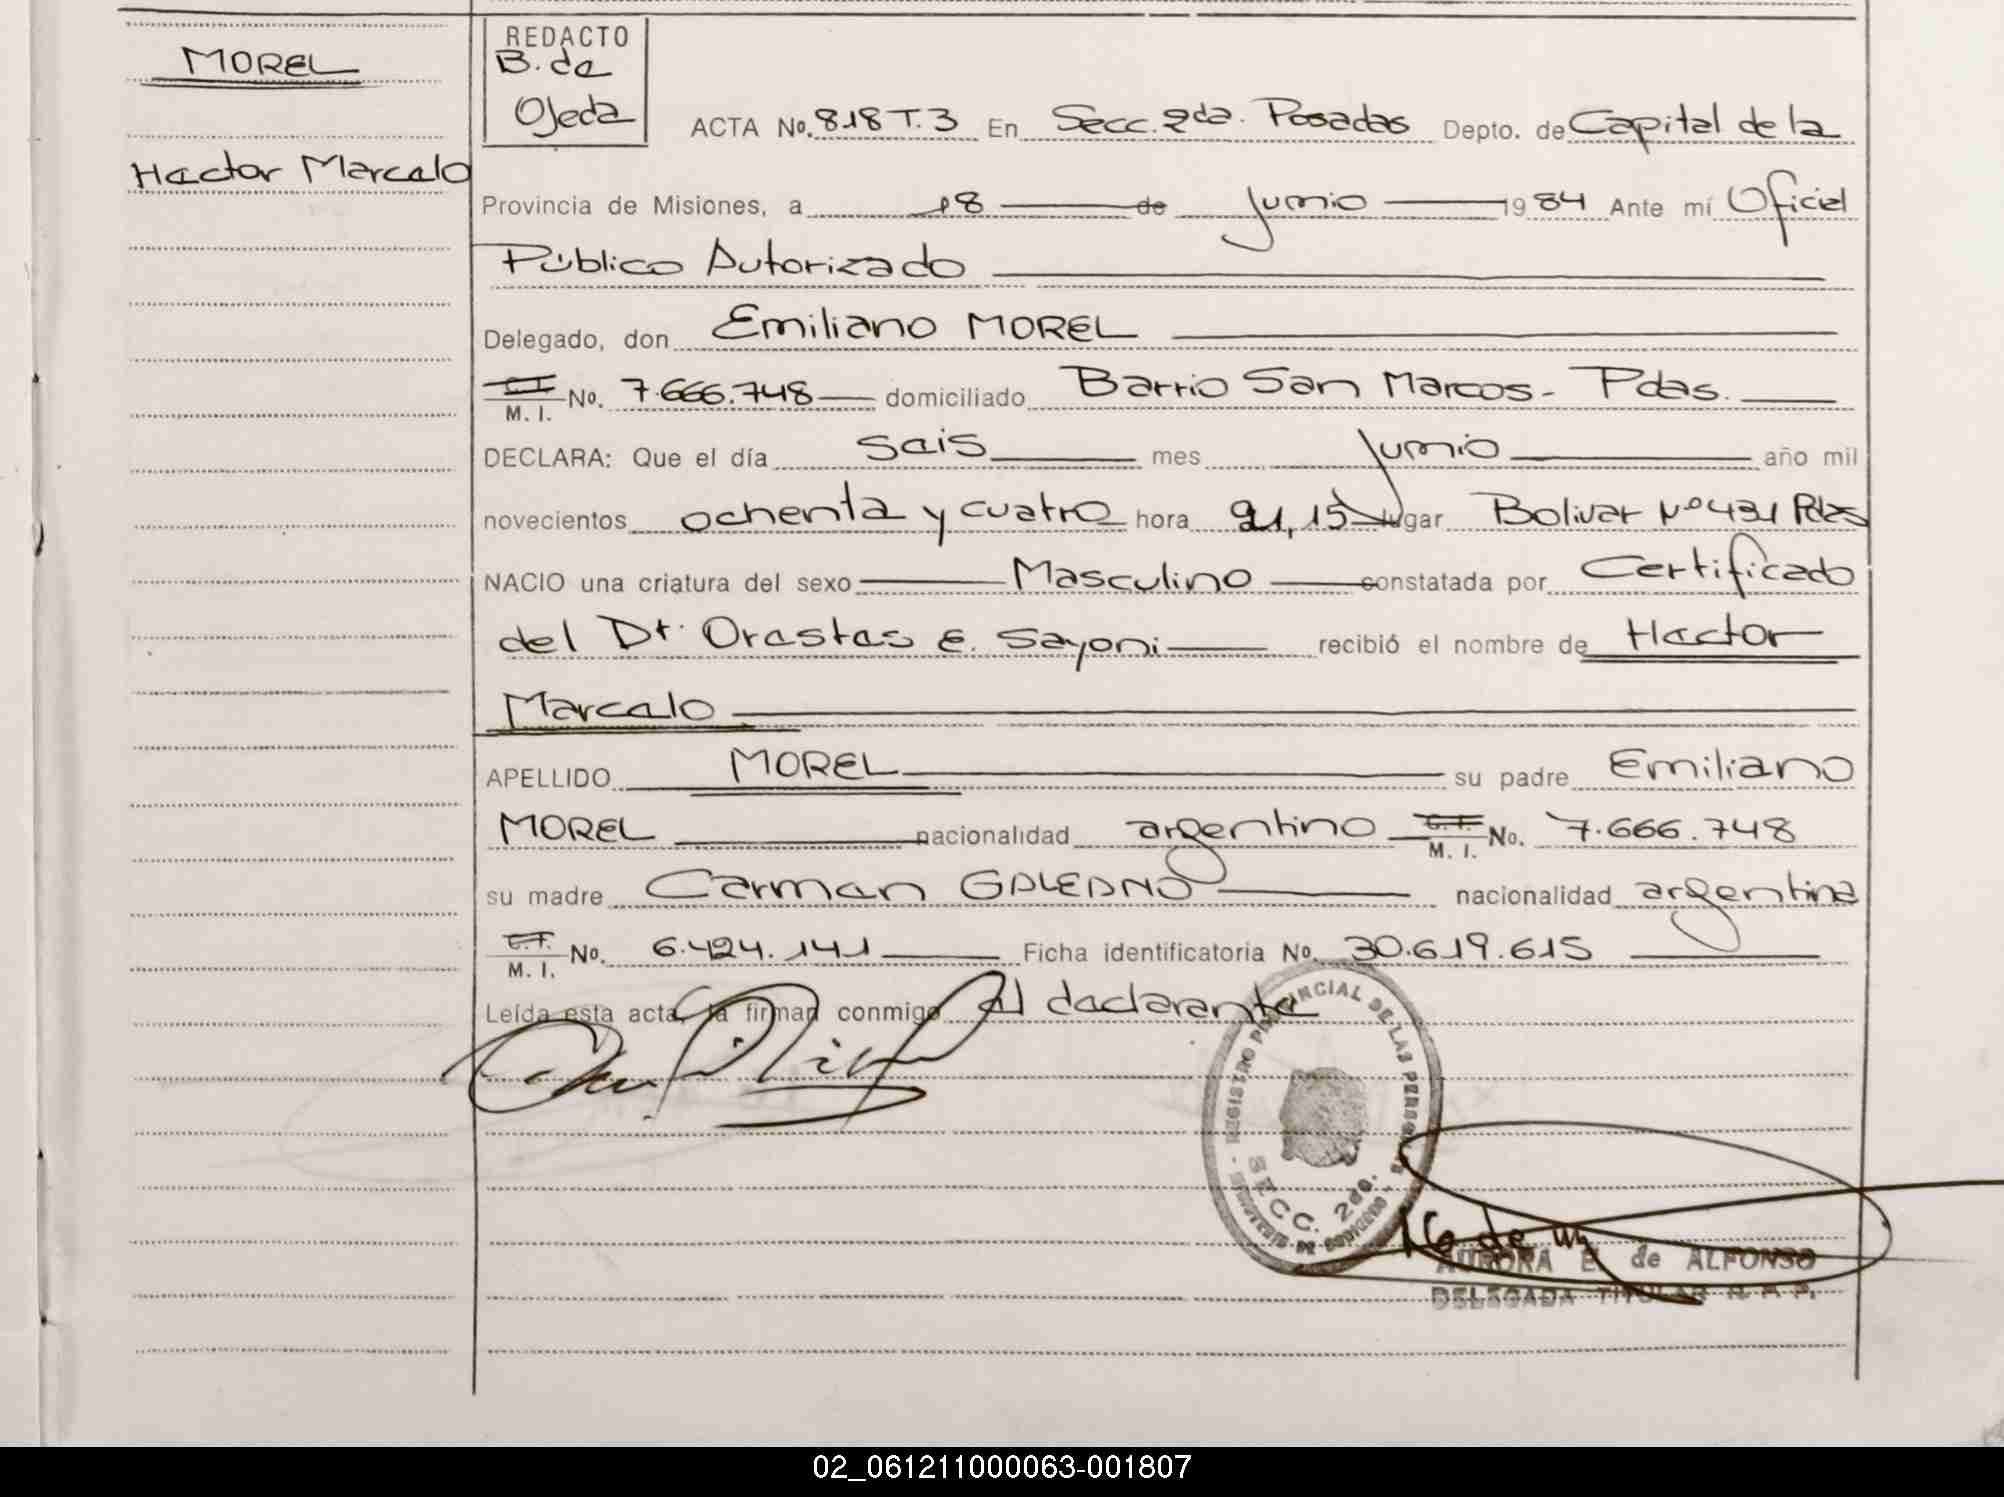 MOREL
Hector Marcelo
REDACTO
B. de
Ojeda
ACTA No. 818 T. 3 En Secc. 2da. Posadas Depto. de Capital de la
Provincia de Misiones, a 18 de junio 1984 Ante mí Oficial
Público Autorizado
Delegado, don Emiliano MOREL
C. I.
M. I. No. 7.666.748 domiciliado Barrio San Marcos - Pdas.
DECLARA: Que el día seis mes junio año mil
novecientos ochenta y cuatro hora 21,15 lugar Bolivar Nº 431 Pdas
NACIO una criatura del sexo Masculino constatada por Certificado
del Dr. Orestes E. Sayoni recibió el nombre de Hector
Marcelo
APELLIDO MOREL su padre Emiliano
MOREL nacionalidad argentino C. I.
M. I. No. 7.666.748
su madre Carmen GALEANO nacionalidad argentina
C. I.
M. I. No. 6.424.141 Ficha identificatoria No. 30.619.615
Leída esta acta, la firman conmigo el declarante
REGISTRO PROVINCIAL DE LAS PERSONAS
SECC. 2da.
AURORA E. de ALFONSO
DELEGADA TITULAR R. P. P.
02_061211000063-001807